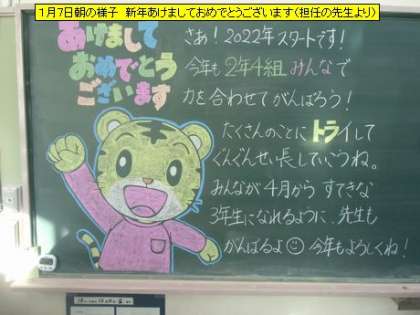 1月7日朝の様子　新年あけましておめでとうございます（担任の先生より）
あけまして
おめでとう
ございます
さあ！2022年スタートです！
今年も2年4組みんなで
力を合わせてがんばろう！
たくさんのことにトライして
ぐんぐんせい長していこうね。
みんなが4月からすてきな
3年生になれるように、先生も
がんばるよ 今年もよろしくね！